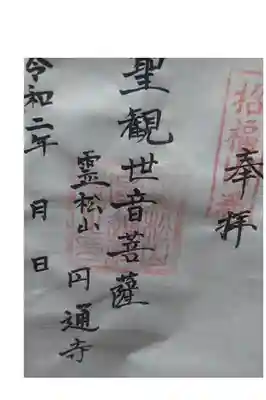 奉拝
聖観世音菩薩
霊松山
円通寺
令和二年 月 日